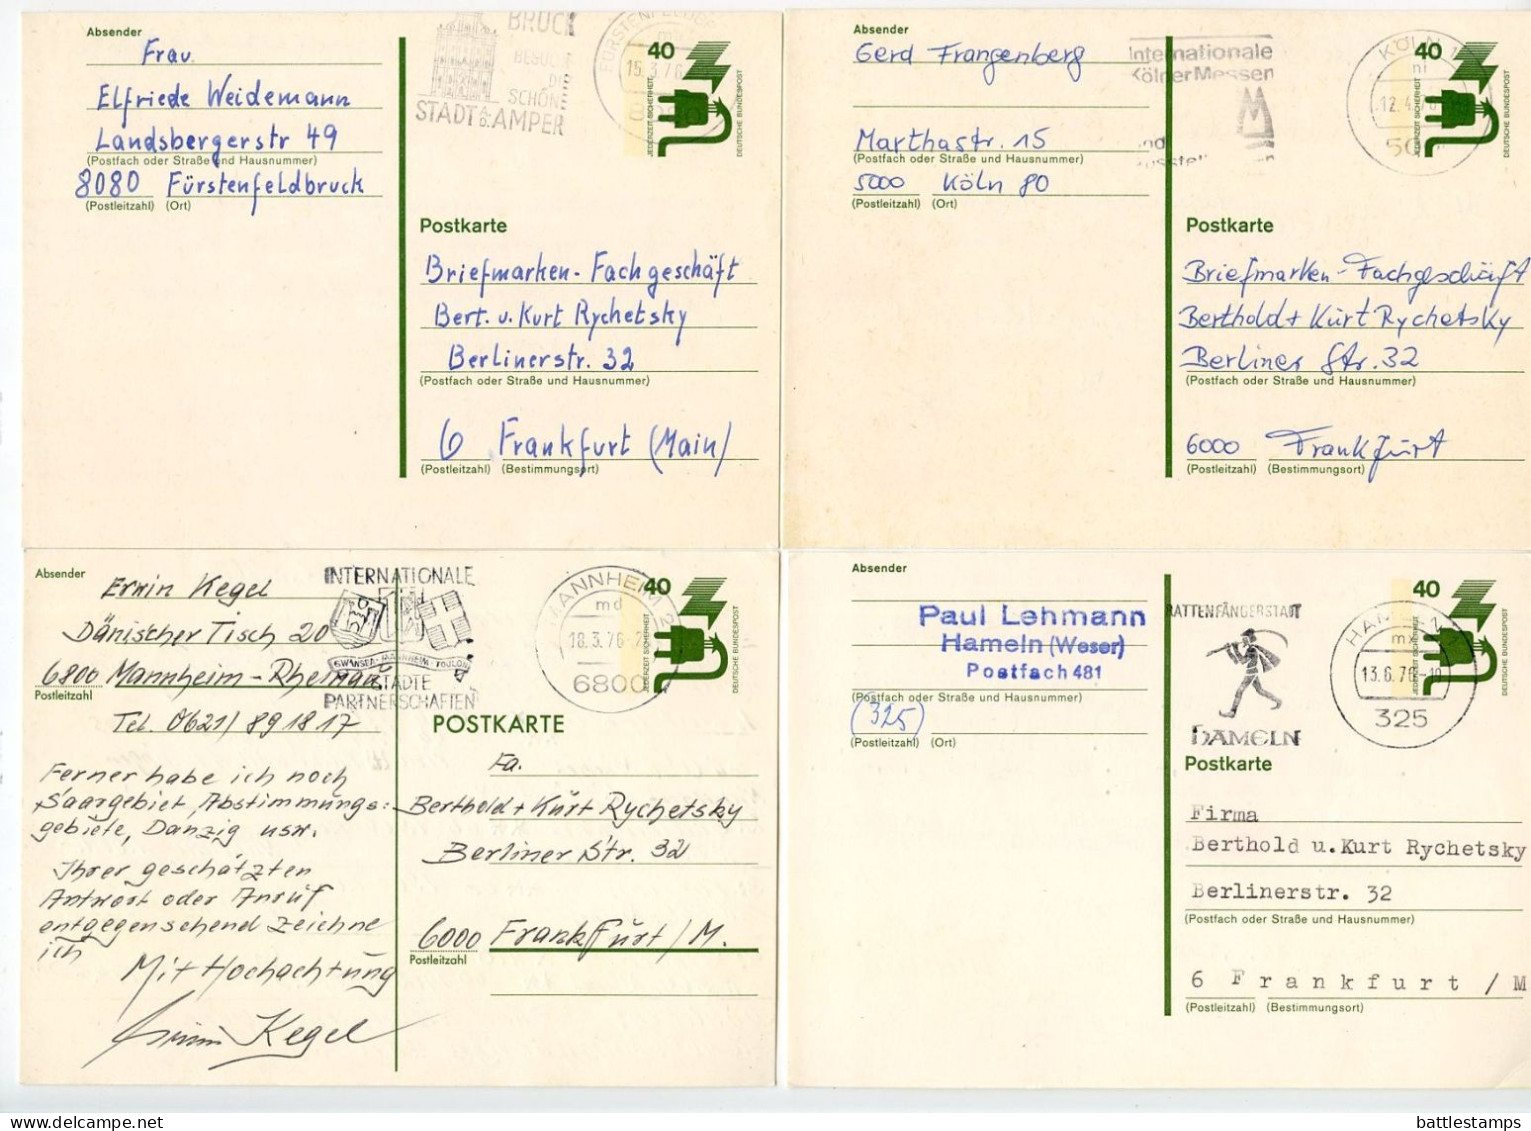 Absender
Frau
Elfriede Weidemann
Landsbergerstr 49
(Postfach oder Straße und Hausnummer)
8080 Fürstenfeldbruck
(Postleitzahl) (Ort)
BRUCK
STADT A.D. AMPER
15.3.76
40
JEDERZEIT SICHERHEIT
DEUTSCHE BUNDESPOST
Postkarte
Briefmarken-Fachgeschäft
Bert. u. Kurt Rychetsky
Berlinerstr. 32
(Postfach oder Straße und Hausnummer)
6 Frankfurt (Main)
(Postleitzahl) (Bestimmungsort)
Absender
Gerd Frangenberg
Marthastr. 15
(Postfach oder Straße und Hausnummer)
5000 Köln 80
(Postleitzahl) (Ort)
Internationale
Kölner Messen
KÖLN
12.4.76
40
JEDERZEIT SICHERHEIT
DEUTSCHE BUNDESPOST
Postkarte
Briefmarken-Fachgeschäft
Berthold + Kurt Rychetsky
Berliner Str. 32
(Postfach oder Straße und Hausnummer)
6000 Frankfurt
(Postleitzahl) (Bestimmungsort)
Absender
Erwin Kegel
Dänischer Tisch 20
6800 Mannheim-Rheinau
Postleitzahl
Tel. 0621/891817
INTERNATIONALE
SWANSEA-MANNHEIM-TOULON
STÄDTE
PARTNERSCHAFTEN
MANNHEIM
md
18.3.76
6800
40
JEDERZEIT SICHERHEIT
DEUTSCHE BUNDESPOST
POSTKARTE
Fa.
Berthold + Kurt Rychetsky
Berliner Str. 32
6000 Frankfurt/M.
Postleitzahl
Ferner habe ich noch
Saargebiet, Abstimmungs=
gebiete, Danzig usw.
Ihrer geschätzten
Antwort oder Anruf
entgegensehend zeichne
ich
Mit Hochachtung
Erwin Kegel
Absender
Paul Lehmann
Hameln (Weser)
Postfach 481
(Postfach oder Straße und Hausnummer)
(325)
(Postleitzahl) (Ort)
RATTENFÄNGERSTADT
HAMELN
HAMELN 1
mx
13.6.76-19
325
40
JEDERZEIT SICHERHEIT
DEUTSCHE BUNDESPOST
Postkarte
Firma
Berthold u. Kurt Rychetsky
Berlinerstr. 32
(Postfach oder Straße und Hausnummer)
6 Frankfurt / M
(Postleitzahl) (Bestimmungsort)
battlestamps